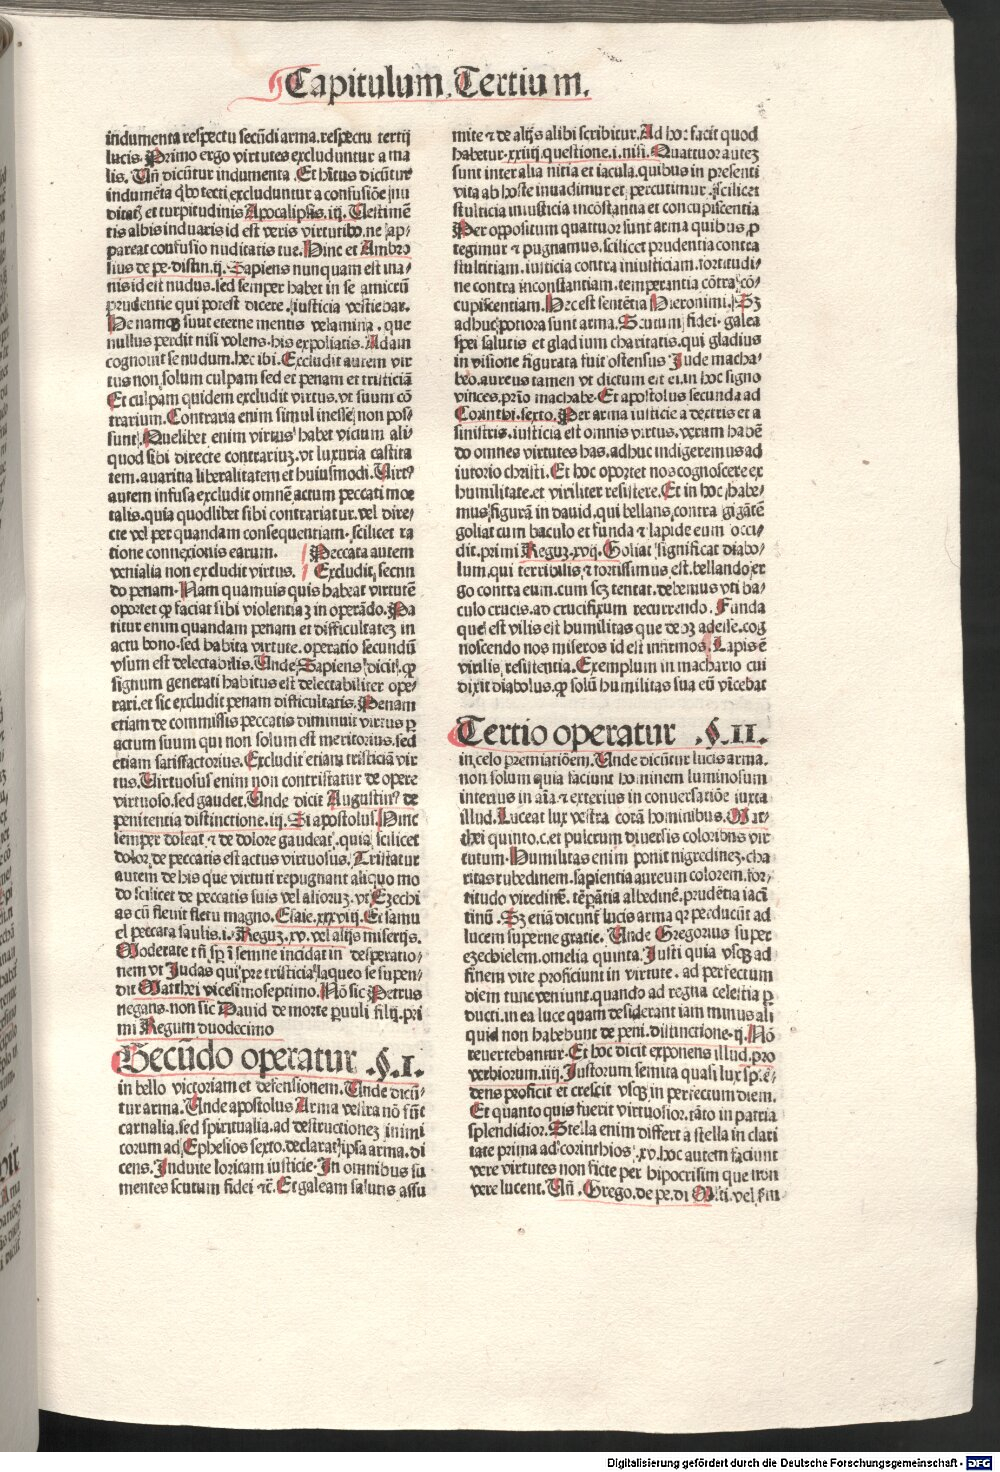 Capitulum Tertium.
indumenta respectu secūdi arma. respectu tertij
lucis. Primo ergo virtutes excluduntur a ma
lis. Uñ dicūtur indumenta. Et hītus dicūtur
indumēta qbo tecti excluduntur a confusiōe ⁊nu
ditatꝭ et turpitudinis Apocalipsis. iij. Uestimē
tis albis induaris id est veris virtutibꝯ. ne ap/
pareat confusio nuditatis tue. Hinc et Ambro
sius de pe. distin. ij. Sapiens nunquam est ina/
nis id est nudus. sed semper habet in se amictū
prudentie qui potest dicere. iusticia vestiebar.
He namqꝫ sunt eterne mentis velamina. que
nullus perdit nisi volens. his expoliatis. Adam
cognouit se nudum. hec ibi. Excludit autem vir
tus non solum culpam sed et penam et tristiciā
Et culpam quidem excludit virtus. vt suum cō
trarium. Contraria enim simul inesse non pos/
sunt. Quelibet enim virtus habet vicium ali/
quod sibi directe contrariuꝫ. vt luxuria castita
tem. auaritia liberalitatem et huiusmodi. Uirtꝰ
autem infusa excludit omnē actum peccati mor
talis. quia quodlibet sibi contrariatur. vel dire/
cte vel per quandam consequentiam. scilicet ra
tione connexionis earum. Peccata autem
venialia non excludit virtus. Excludit secun
do penam. Nam quamuis quis habeat virtutē
oportet ꝙ faciat sibi violentiaꝫ in operādo. Pa
titur enim quandam penam et difficultateꝫ in
actu bono. sed habita virtute. operatio secundū
vsum est delectabilis. Unde Sapiens dicit. ꝙ
signum generati habitus est delectabiliter ope/
rari. et sic excludit penam difficultatis. Penam
etiam de commissis peccatis diminuit virtus ꝑ
actum suum qui non solum est meritorius. sed
etiam satisfactorius. Excludit etiam tristiciā vir
tus. Uirtuosus enim non contristatur de opere
virtuoso. sed gaudet. Unde dicit Augustinꝰ de
penitentia distinctione. iij. Si apostolus. Hinc
semper doleat ⁊ de dolore gaudeat. quia scilicet
dolor de peccatis est actus virtuosus. Tristatur
autem de his que virtuti repugnant aliquo mo
do scilicet de peccatis suis vel aliorꝫ. vt Ezechi
as cū fleuit fletu magno. Esaie. xxxviij. Et samu
el peccata saulis. i. Reguꝫ. xv. vel alijs miserijs.
Moderate tñ sꝑ ī semne incidat in desperatio/
nem vt Judas qui pre tristicia laqueo se suspen/
dit Matthei vicesimoseptimo. Nō sic Petrus
negans. non sic Dauid de morte ꝑuuli filij. pri
mi Regum duodecimo
Secūdo operatur .§. I.
in bello victoriam et defensionem. Unde dicū/
tur arma. Unde apostolus Arma vestra nō sūt
carnalia. sed spiritualia. ad destructionez inimi
corum ad Ephesios sexto. declarat ipsa arma. di
cens. Induite loricam iusticie. In omnibus su
mentes scutum fidei ⁊c. Et galeam salutis assu
mite ⁊ de alijs alibi scribitur. Ad hoc facit quod
habetur. xxiij. questione. i. nisi. Quattuor auteꝫ
sunt inter alia vitia et iacula. quibus in presenti
vita ab hoste inuadimur et percutimur. scilicet
stulticia iniusticia incōstantia et concupiscentia
Per oppositum quattuor sunt arma quibus ꝓ
tegimur ⁊ pugnamus. scilicet prudentia contra
stultitiam. iusticia contra iniusticiam. fortitudi/
ne contra inconstantiam. temperantia cōtra cō/
cupiscentiam. Hec est sentētia Hieronimi. Sꝫ
adhuc potiora sunt arma. Scutum fidei. galea
spei salutis et gladium charitatis. qui gladius
in visione figurata fuit ostensus Jude macha/
beo. aureus tamen vt dictum est ei. in hoc signo
vinces. prīo machabe. Et apostolus secunda ad
Corinthi. sexto. Per arma iusticie a dextris et a
sinistris. iusticia est omnis virtus. verum habē
do omnes virtutes has. adhuc indigeremus ad
iutorio christi. Et hoc oportet nos cognoscere ex
humilitate. et viriliter resistere. Et in hoc habe/
mus figurā in dauid. qui bellans contra gigātē
goliat cum baculo et funda ⁊ lapide eum occi/
dit. primi Reguꝫ. xvij. Goliat significat diabo/
lum. qui terribilis ⁊ fortissimus est. bellando er
go contra eum. cum scꝫ tentat. debemus vti ba/
culo crucis. ad crucifixum recurrendo. Funda
que est vilis est humilitas que debꝫ adesse. cog
noscendo nos miseros id est infirmos. Lapis ē
virilis resistentia. Exemplum in machario cui
dixit diabolus. ꝙ solū humilitas sua eū vīcebat
Tertio operatur .§. II.
in celo premiatiōem. Unde dicūtur lucis arma.
non solum quia faciunt hominem luminosum
interius in aīa ⁊ exterius in conuersatiōe iuxta
illud. Luceat lux vestra corā hominibus. Mat/
thei quinto. c. et pulcrum diuersis coloribus vir
tutum. Humilitas enim ponit nigredinez. cha
ritas rubedinem. sapientia aureum colorem. for/
titudo viredinē. tēpātia albedinē. prudētia iacī
tinū. Sꝫ etiā dicunt lucis arma qꝛ perducūt ad
lucem superne gratie. Unde Gregorius super
ezechielem. omelia quinta. Justi quia vsqꝫ ad
finem vite proficiunt in virtute. ad perfectum
diem tunc veniunt. quando ad regna celestia ꝑ
ducti. in ea luce quam desiderant iam minus ali
quid non habebunt de peni. distinctione. ij. Nō
reuertebantur. Et hoc dicit exponens illud. pro
verbiorum. iiij. Justorum semita quasi lux splē/
dens proficit et crescit vsqꝫ in perfectum diem.
Et quanto quis fuerit virtuosior. tāto in patria
splendidior. Stella enim differt a stella in clari
tate prima ad corinthios. xv. hoc autem faciunt
vere virtutes non ficte per hipocrisim que non
vere lucent. Uñ. Grego. de pe. di
Digitalisierung gefördert durch die Deutsche Forschungsgemeinschaft - DFG